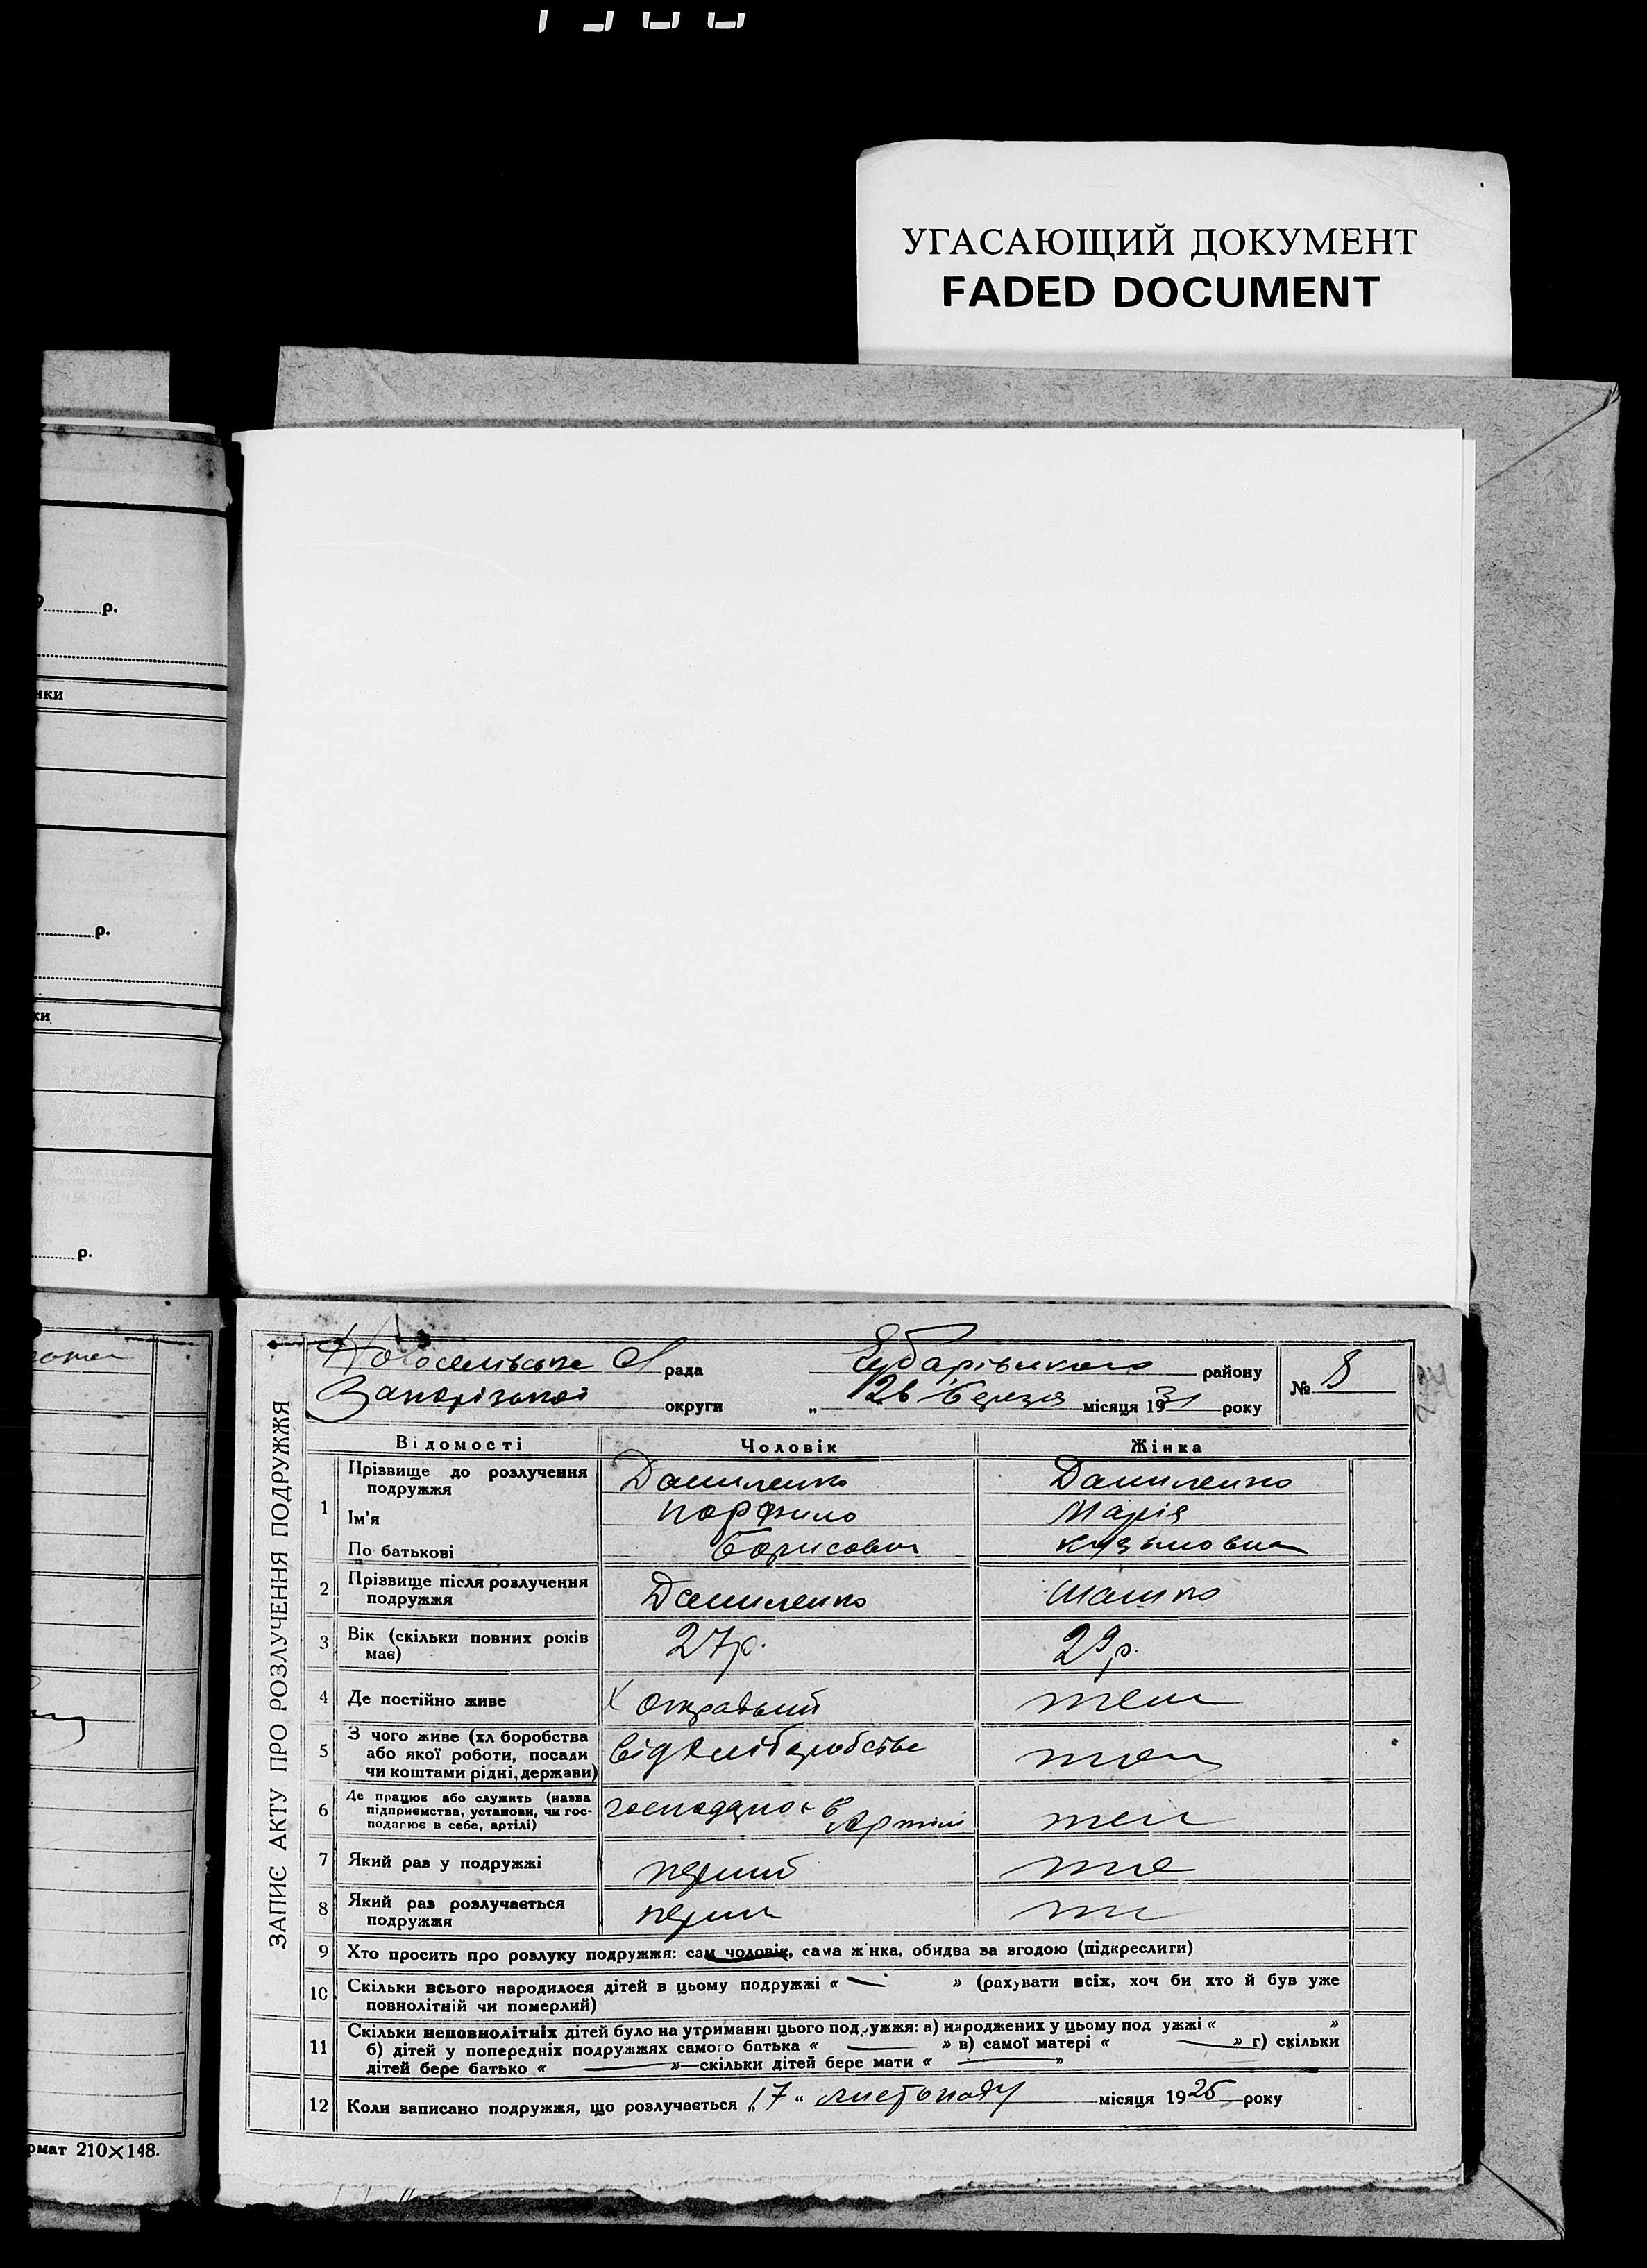 УГАСАЮЩИЙ ДОКУМЕНТ
FADED DOCUMENT
р.
нки
р.
ки
р.
рмат 210×148.
ЗАПИС АКТУ ПРО РОЗЛУЧЕННЯ ПОДРУЖЖЯ
рада району № 8
Запорізької округи „ 26 березня місяця 1931 року
Відомості Чоловік Жінка
1 Прізвище до розлучення подружжя Даниленко Даниленко
Ім'я Порфило Марія
По батькові Борисович Кузьмовна
2 Прізвище після розлучення подружжя Даниленко
3 Вік (скільки повних років має) 27р. 29р.
4 Де постійно живе х Отрадний теж
5 З чого живе (хліборобства або якої роботи, посади чи коштами рідні, держави) від хліборобства теж
6 Де працює або служить (назва підприємства, установи, чи господарює в себе, артілі) в Артілі теж
7 Який раз у подружжі перший
8 Який раз розлучається подружжя перший
9 Хто просить про розлуку подружжя: сам чоловік, сама жінка, обидва за згодою (підкреслити)
10 Скільки всього народилося дітей в цьому подружжі « — » (рахувати всіх, хоч би хто й був уже
повнолітній чи померлий)
11 Скільки неповнолітніх дітей було на утриманні цього подружжя: а) народжених у цьому подружжі « »
б) дітей у попередніх подружжях самого батька « — » в) самої матері « — » г) скільки
дітей бере батько « — »—скільки дітей бере мати « — »
12 Коли записано подружжя, що розлучається „17“ листопаду місяця 1925 року